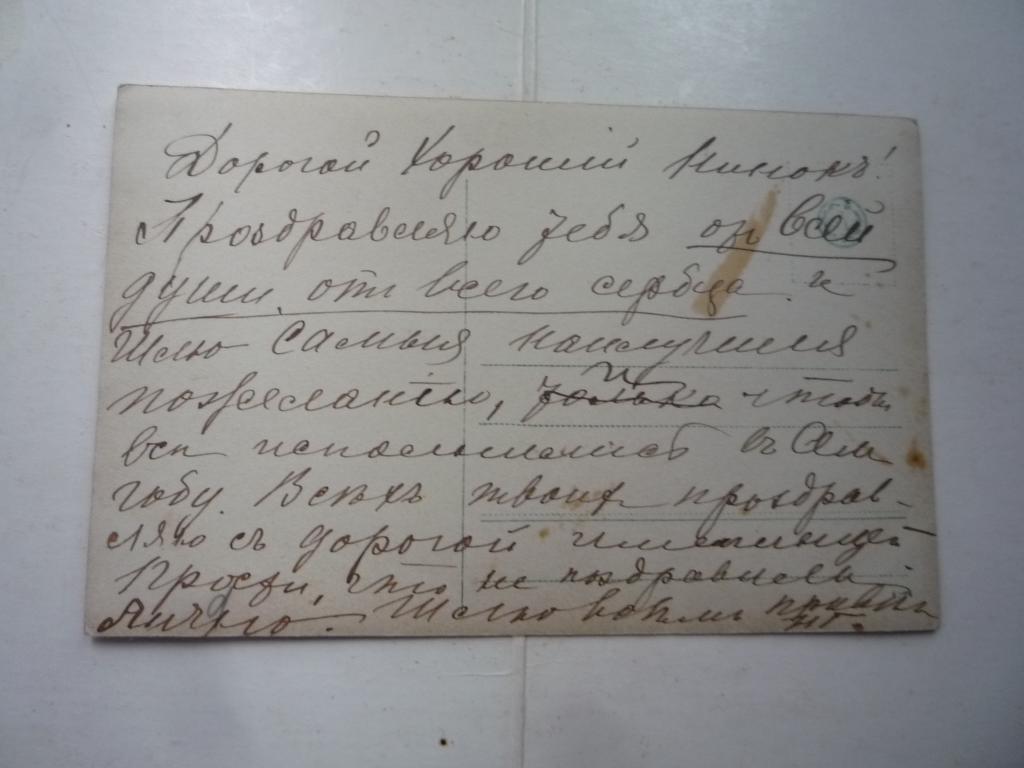 Дорогой Хороший Нинокъ!
Проздравляю тебя от всей
души от всего сердца и
Шлю самыя наилучшия
пожелания, только чтобы
все исполнилось въ
году. Всѣхъ твоих проздрав-
ляю съ дорогой именинцей
Прости, что не поздравила
Лично. Шлю всѣмъ привѣтъ